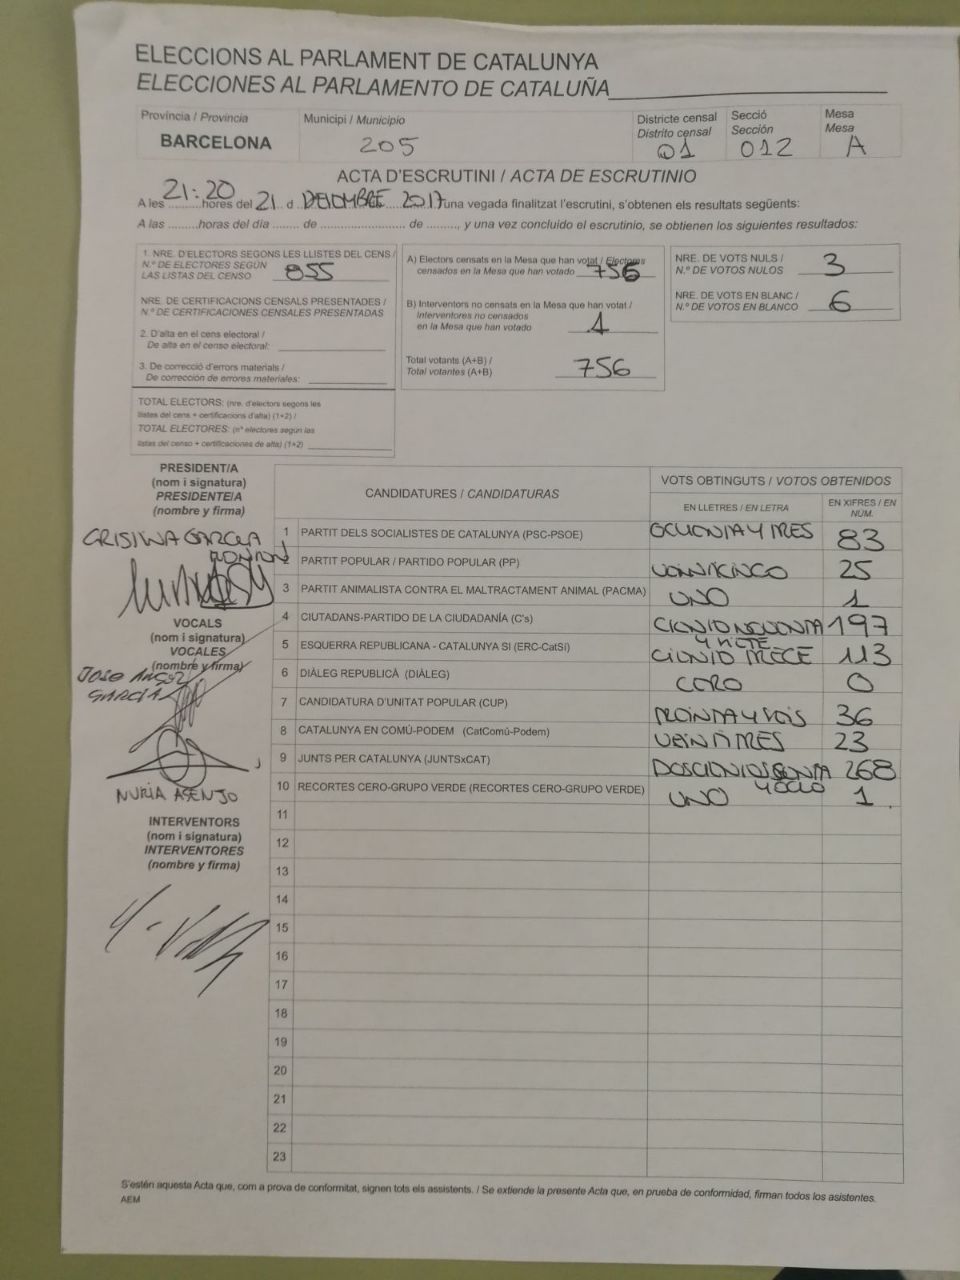 ELECCIONS AL PARLAMENT DE CATALUNYA
ELECCIONES AL PARLAMENTO DE CATALUÑA
Província / Provincia
BARCELONA
Municipi / Municipio
205
Districte censal
Distrito censal
01
Secció
Sección
012
Mesa
Mesa
A
ACTA D'ESCRUTINI / ACTA DE ESCRUTINIO
A les 21:20 hores del 21 d DEICIMBRE 2017 una vegada finalitzat l'escrutini, s'obtenen els resultats següents:
A las .........horas del día ....... de ........................ de ........., y una vez concluido el escrutinio, se obtienen los siguientes resultados:
1. NRE. D'ELECTORS SEGONS LES LLISTES DEL CENS /
N.º DE ELECTORES SEGÚN
LAS LISTAS DEL CENSO 855
NRE. DE CERTIFICACIONS CENSALS PRESENTADES /
N.º DE CERTIFICACIONES CENSALES PRESENTADAS
2. D'alta en el cens electoral /
De alta en el censo electoral:
3. De correcció d'errors materials /
De corrección de errores materiales:
TOTAL ELECTORS: (nre. d'electors segons les
llistes del cens + certificacions d'alta) (1+2) /
TOTAL ELECTORES: (nº electores según las
listas del censo + certificaciones de alta) (1+2)
A) Electors censats en la Mesa que han votat / Electores
censados en la Mesa que han votado 756
B) Interventors no censats en la Mesa que han votat /
Interventores no censados
en la Mesa que han votado 1
Total votants (A+B) /
Total votantes (A+B) 756
NRE. DE VOTS NULS /
N.º DE VOTOS NULOS 3
NRE. DE VOTS EN BLANC /
N.º DE VOTOS EN BLANCO 6
PRESIDENT/A
(nom i signatura)
PRESIDENTE/A
(nombre y firma)
CRISTINA GARCIA
VOCALS
(nom i signatura)
VOCALES
(nombre y firma)
JOSE ANGEL
GARCIA
NURIA ASENJO
INTERVENTORS
(nom i signatura)
INTERVENTORES
(nombre y firma)
CANDIDATURES / CANDIDATURAS
VOTS OBTINGUTS / VOTOS OBTENIDOS
EN LLETRES / EN LETRA
EN XIFRES / EN NUM.
1 PARTIT DELS SOCIALISTES DE CATALUNYA (PSC-PSOE) OCHENTA Y TRES 83
2 PARTIT POPULAR / PARTIDO POPULAR (PP) VEINTICINCO 25
3 PARTIT ANIMALISTA CONTRA EL MALTRACTAMENT ANIMAL (PACMA) UNO 1
4 CIUTADANS-PARTIDO DE LA CIUDADANÍA (C's) CIENTO NOVENTA Y SIETE 197
5 ESQUERRA REPUBLICANA - CATALUNYA SI (ERC-CatSí) CIENTO TRECE 113
6 DIÀLEG REPUBLICÀ (DIÀLEG) CERO 0
7 CANDIDATURA D'UNITAT POPULAR (CUP) TREINTA Y SEIS 36
8 CATALUNYA EN COMÚ-PODEM (CatComú-Podem) VEINTITRES 23
9 JUNTS PER CATALUNYA (JUNTSxCAT) DOSCIENTOS SESENTA Y OCHO 268
10 RECORTES CERO-GRUPO VERDE (RECORTES CERO-GRUPO VERDE) UNO 1
11
12
13
14
15
16
17
18
19
20
21
22
23
S'estén aquesta Acta que, com a prova de conformitat, signen tots els assistents. / Se extiende la presente Acta que, en prueba de conformidad, firman todos los asistentes.
AEM